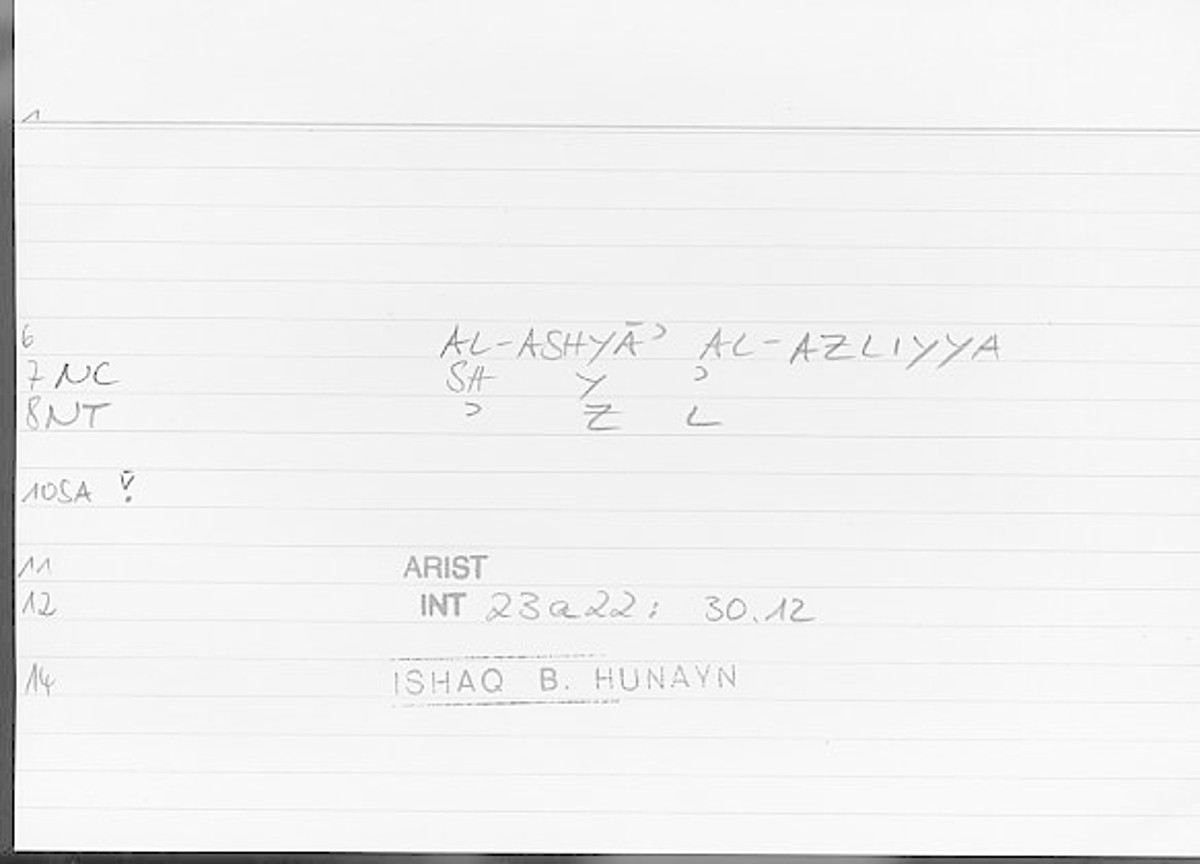 1
6 AL-ASHYĀʾ AL-AZLIYYA
7 NC SH Y ʾ
8NT ʾ Z L
10SA
11 ARIST
12 INT 23a22; 30.12
14 ISHAQ B. HUNAYN